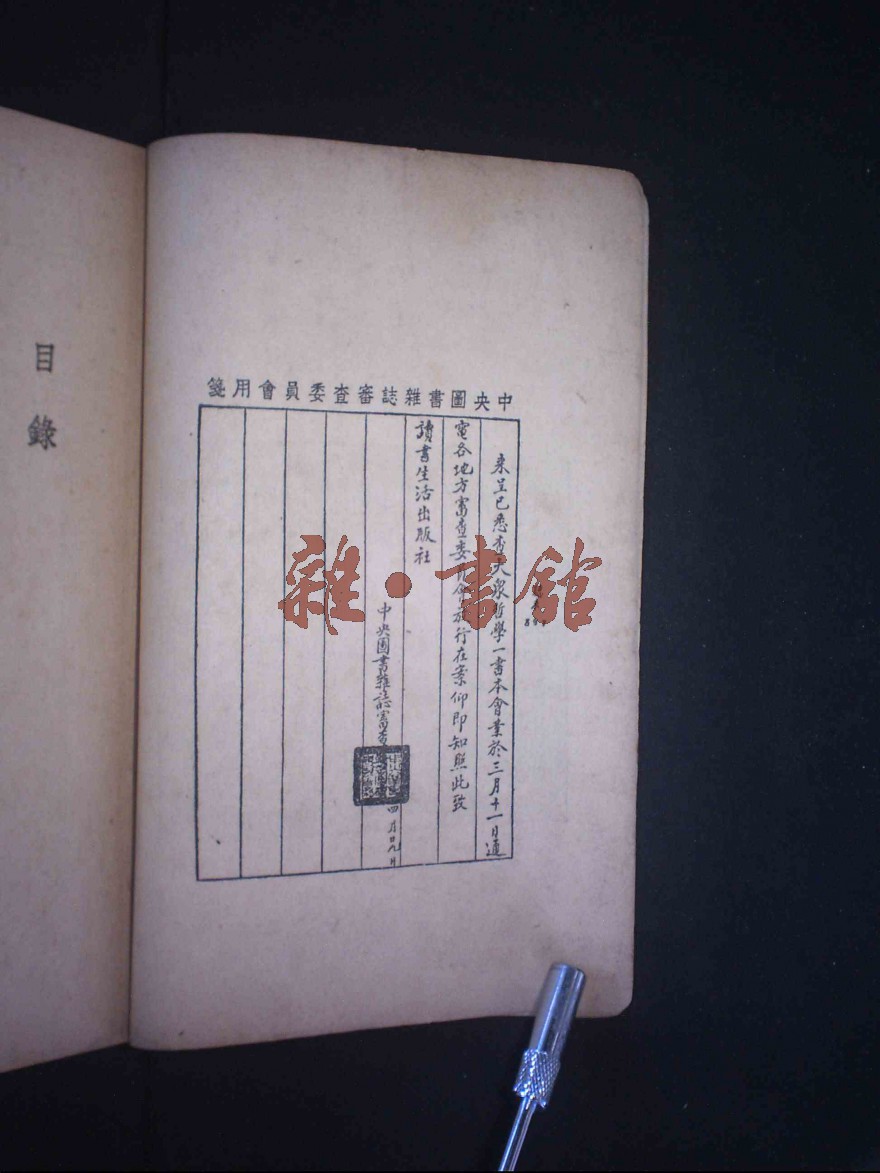 中央圖書雜誌審查委員會用箋
來呈已悉查大衆哲學一書本會業於三月十一日通
電各地方審查委員會放行在案仰即知照此致
讀書生活出版社
中央圖書雜誌審查
四月廿九日
目錄
雜·書館